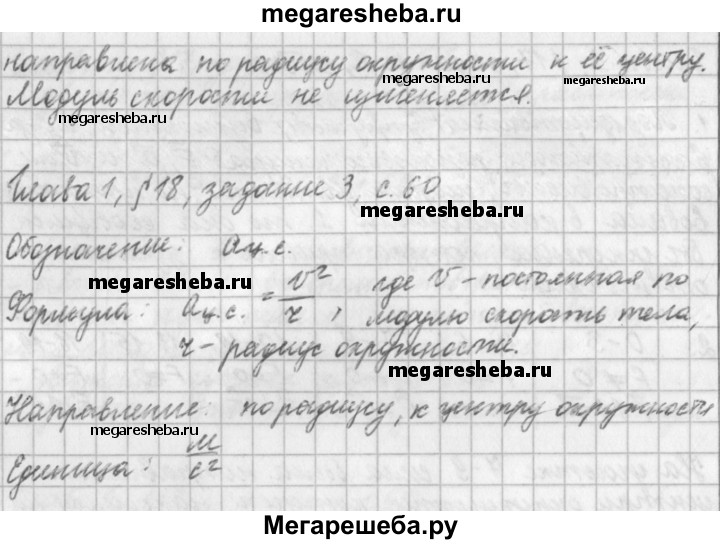 megaresheba.ru
направлена по радиусу окружности к её центру.
megaresheba.ru
megaresheba.ru
Модуль скорости не изменяется.
megaresheba.ru
Глава 1, § 18, задание 3, с. 60
megaresheba.ru
Обозначение: aц.с.
megaresheba.ru
Формула: aц.с. = v²/r, где v – постоянная по
модулю скорость тела,
r – радиус окружности.
megaresheba.ru
Направление: по радиусу, к центру окружности
megaresheba.ru
Единица: м/с²
Мегарешеба.ру